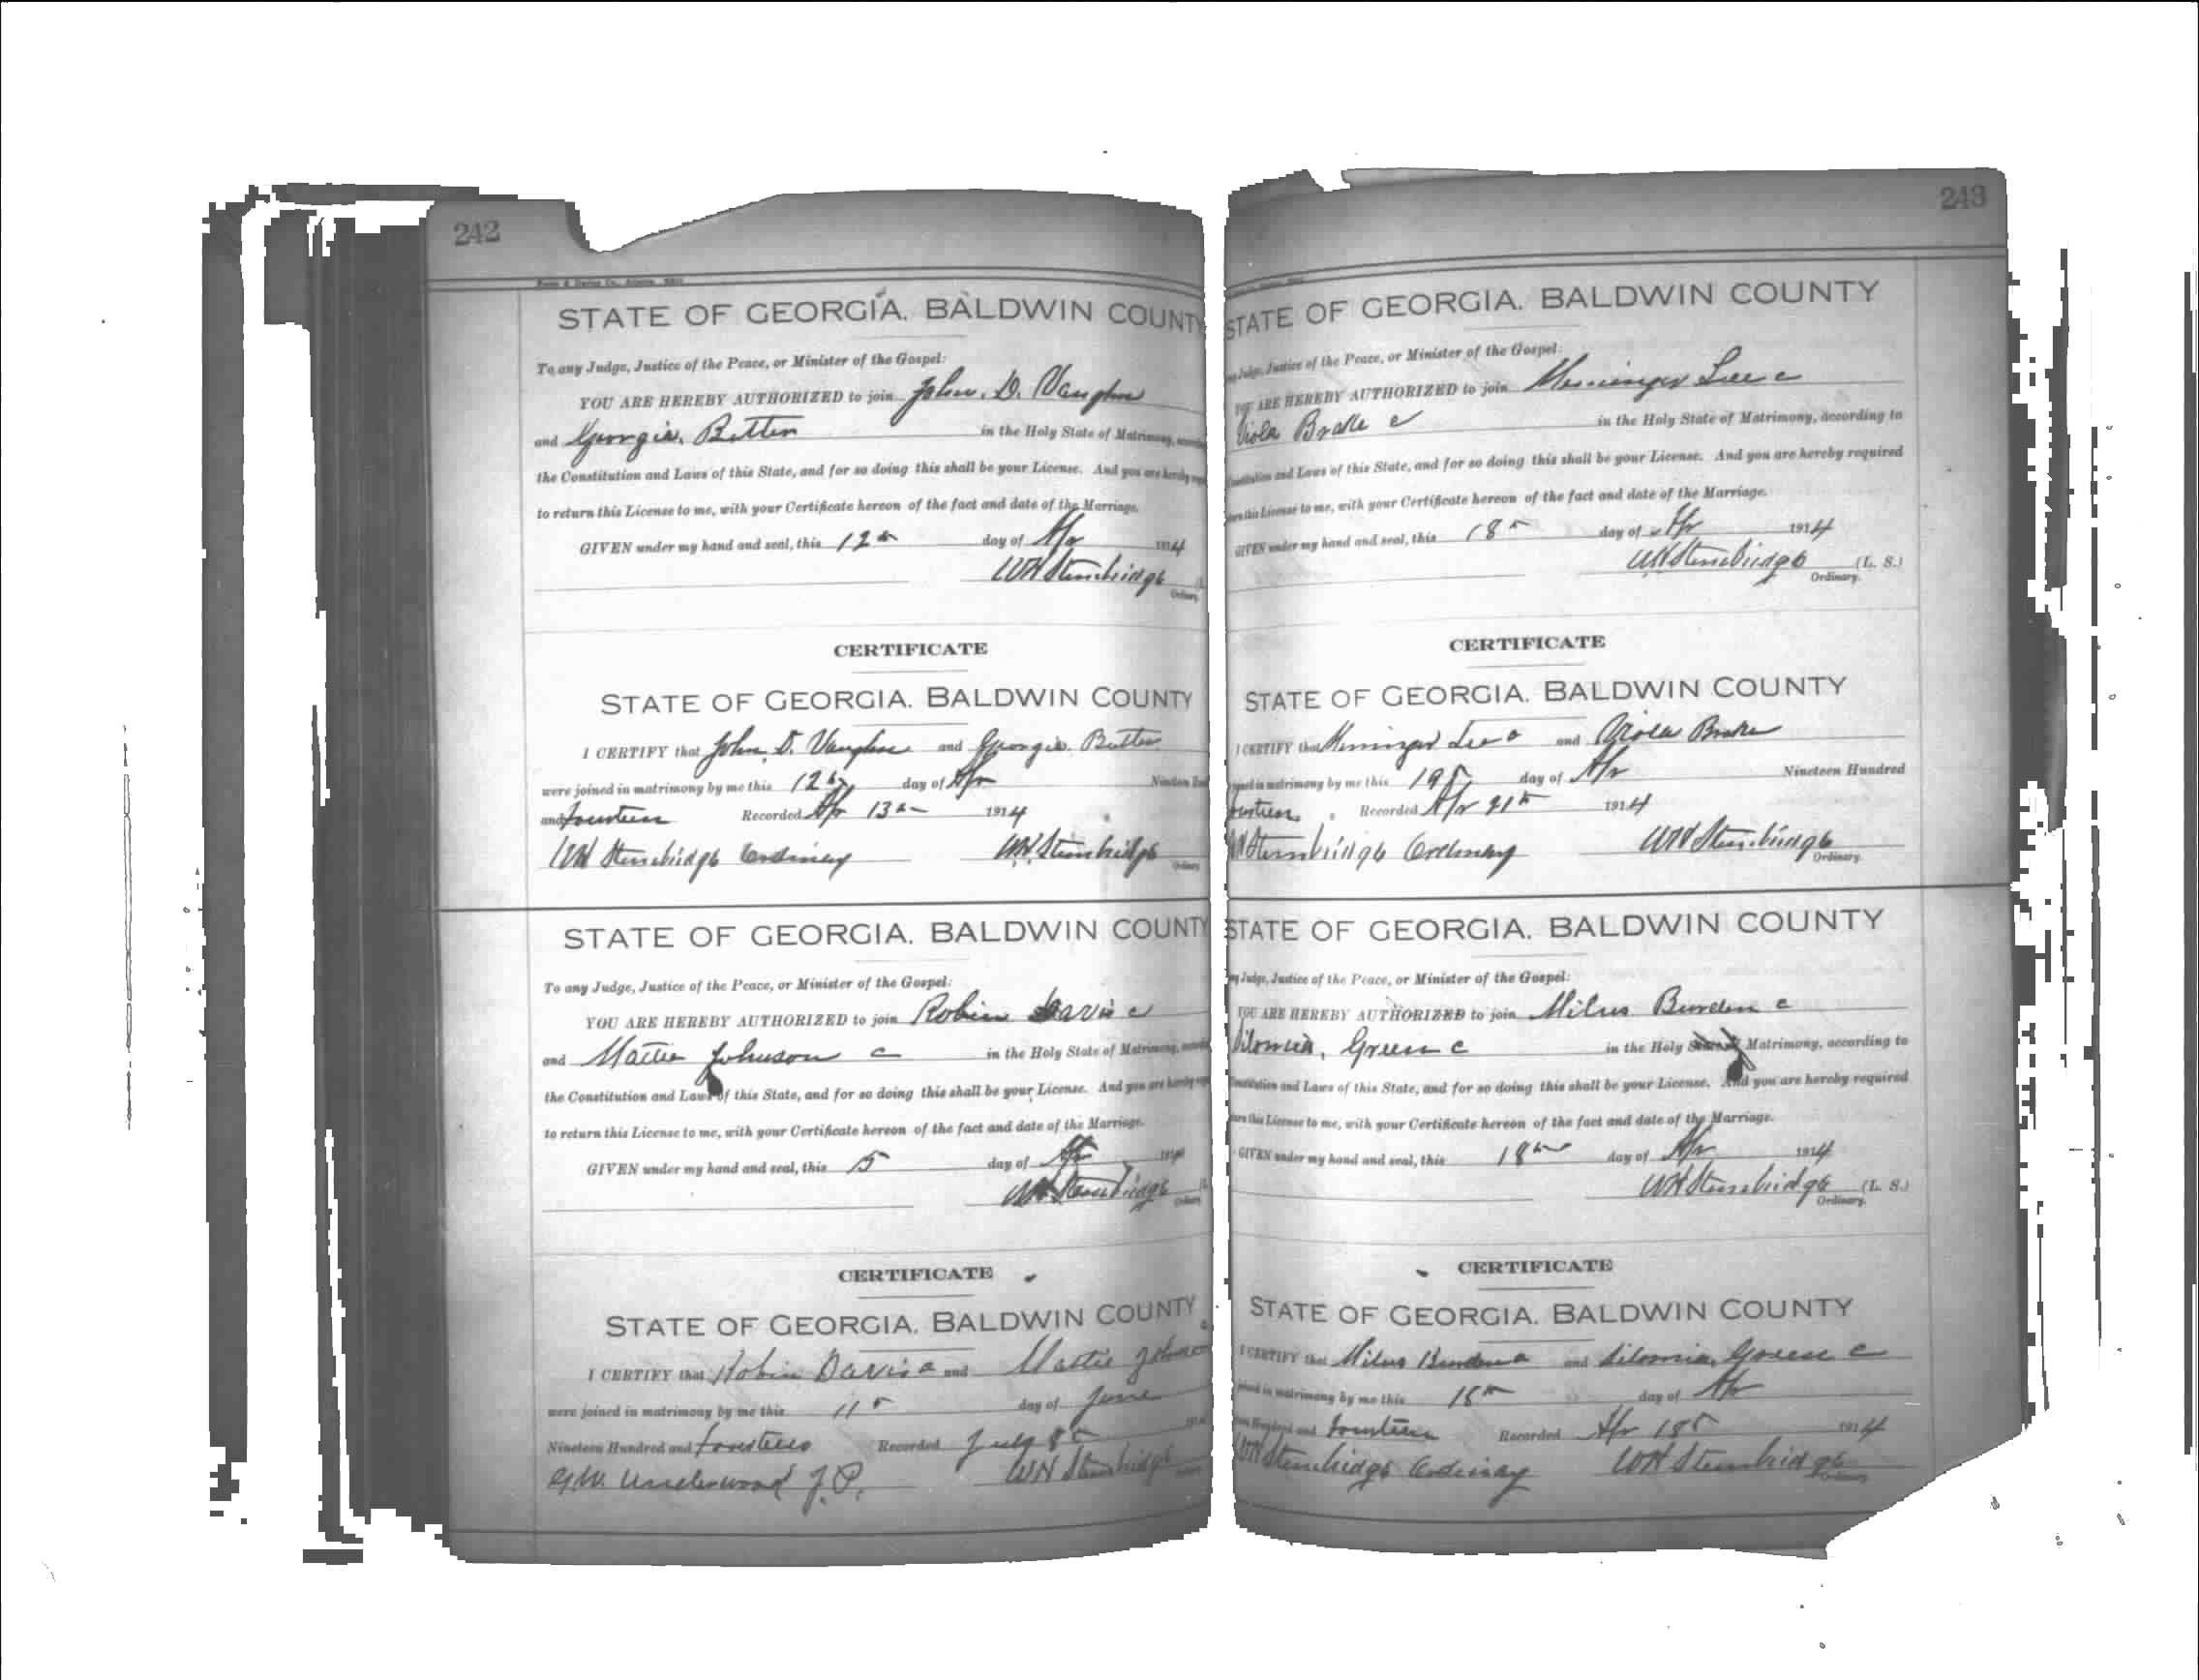 242
STATE OF GEORGIA. BALDWIN COUNTY
To any Judge, Justice of the Peace, or Minister of the Gospel:
YOU ARE HEREBY AUTHORIZED to join John. D. Vaughn
and Georgia. in the Holy State of Matrimony,
the Constitution and Laws of this State, and for so doing this shall be your License. And you are hereby
to return this License to me, with your Certificate hereon of the fact and date of the Marriage.
GIVEN under my hand and seal, this 12th day of Apr 1914
WH Stembridge
Ordinary
CERTIFICATE
STATE OF GEORGIA. BALDWIN COUNTY
I CERTIFY that John. D. Vaughn and Georgia.
were joined in matrimony by me this 12th day of Apr Nineteen
and fourteen Recorded Apr 13th 1914
WH Stembridge Ordinary WH Stembridge
Ordinary
STATE OF GEORGIA. BALDWIN COUNTY
To any Judge, Justice of the Peace, or Minister of the Gospel:
YOU ARE HEREBY AUTHORIZED to join Robin Davis c
and Mattie Johnson c in the Holy State of Matrimony,
the Constitution and Laws of this State, and for so doing this shall be your License. And you are hereby
to return this License to me, with your Certificate hereon of the fact and date of the Marriage.
GIVEN under my hand and seal, this 5 day of Apr 1914
WH Stembridge
Ordinary
CERTIFICATE
STATE OF GEORGIA. BALDWIN COUNTY
I CERTIFY that Robin Davis c and Mattie
were joined in matrimony by me this 11th day of June
Nineteen Hundred and fourteen Recorded July 8th
G.W. Underwood J.P. WH Stembridge
243
STATE OF GEORGIA. BALDWIN COUNTY
Judge, Justice of the Peace, or Minister of the Gospel:
YOU ARE HEREBY AUTHORIZED to join Lee c
Viola c in the Holy State of Matrimony, according to
and Laws of this State, and for so doing this shall be your License. And you are hereby required
this License to me, with your Certificate hereon of the fact and date of the Marriage.
GIVEN under my hand and seal, this 18th day of Apr 1914
WH Stembridge (L. S.)
Ordinary.
CERTIFICATE
STATE OF GEORGIA. BALDWIN COUNTY
I CERTIFY that Lee c and Viola
in matrimony by me this 19th day of Apr Nineteen Hundred
fourteen. Recorded Apr 21th 1914
WH Stembridge Ordinary WH Stembridge
Ordinary.
STATE OF GEORGIA. BALDWIN COUNTY
Judge, Justice of the Peace, or Minister of the Gospel:
YOU ARE HEREBY AUTHORIZED to join Milus Burden c
Green c in the Holy Matrimony, according to
and Laws of this State, and for so doing this shall be your License. And you are hereby required
this License to me, with your Certificate hereon of the fact and date of the Marriage.
GIVEN under my hand and seal, this 18th day of Apr 1914
WH Stembridge (L. S.)
Ordinary.
CERTIFICATE
STATE OF GEORGIA. BALDWIN COUNTY
I CERTIFY that Milus Burden c and Green c
in matrimony by me this 18th day of Apr
Hundred and fourteen Recorded Apr 18th 1914
WH Stembridge Ordinary WH Stembridge
Ordinary